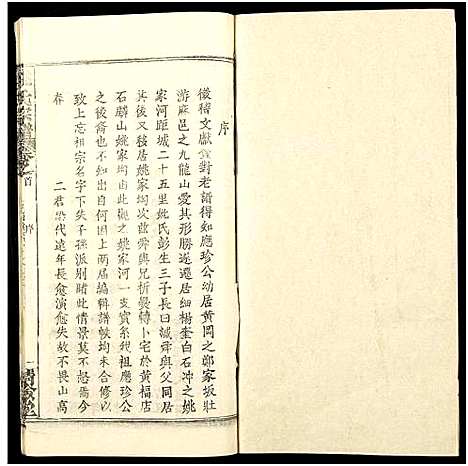 序
徵稽文獻查對老譜得知應珍公幼居黃岡之鄭家坂壯
游麻邑之九龍山愛其形勝遂遷居細楊奎白石冲之姚
家河距城二十五里妣氏彭生三子長曰誠舜與父同居
其後又移居姚家坳次曰舜與兄折爨轉卜宅於黃福店
石驎山姚家坳由此觀之姚家河一支實系我祖應珍公
之後裔也不知自何因上兩屆編輯譜帙均未合修以
致上忘祖宗名字下失子孫派別睹此情景莫不怒焉今
春　二君梁代遠年長愈演愈失故不畏山高